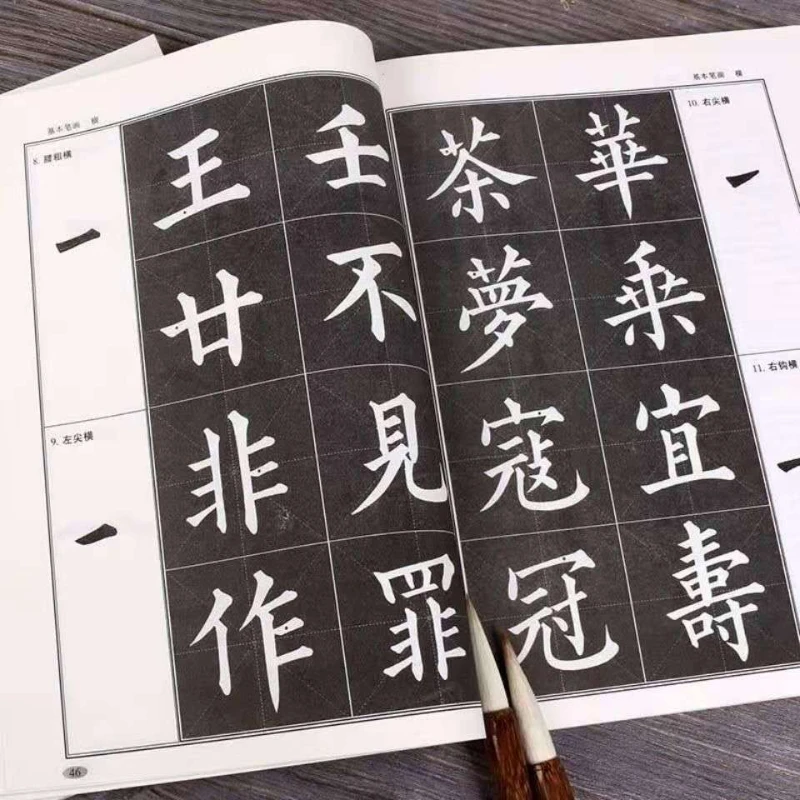 基本笔画 横
8. 腰粗横
王 壬
廿 不
9. 左尖横
非 見
作 罪
46
基本笔画 横
10. 右尖横
茶 華
夢 乘
11. 右钩横
寇 宜
冠 壽